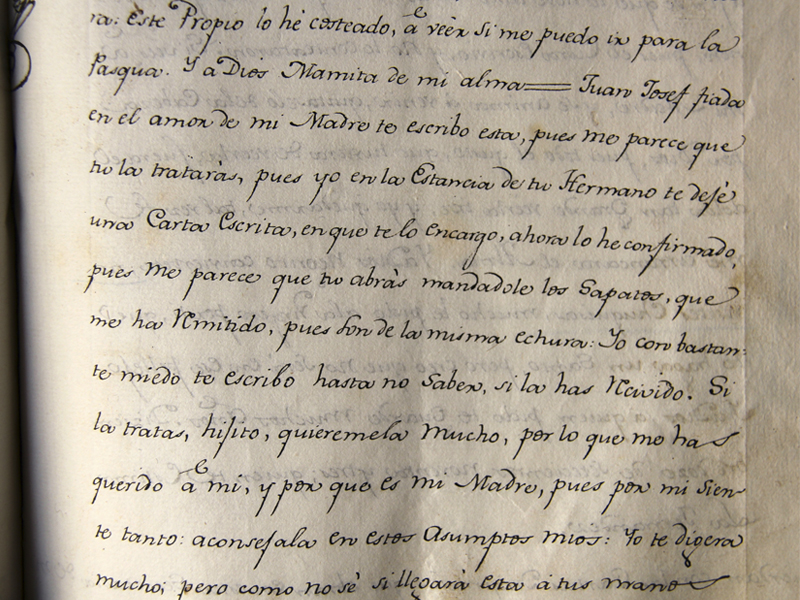 ra: Este Propio lo hé costeado, â veèr si me puedo ir para la
Pasqua. Y a Dios Mamita de mi alma== Juan Josef fiada
en el amor de mi Madre te escribo esta, pues me parece que
tu la trataràs, pues yo en la Estancia de tu Hermano te dejè
una Carta Escrita, en que te lo encargo, ahora lo he confirmado,
pues me parece que tu abràs mandadole los Sapatos, que
me ha Remitido, pues son de la misma echura: Yo con bastan-
te miedo te escribo hasta no Saber, si la has Recivido. Si
la tratas, hijito, quieremela mucho, por lo que me ha
querido â mi, y por que es mi Madre, pues por mi sien-
te tanto: aconsejala en estos Asumptos mios: Yo te digera
mucho; pero como no sè si llegarà esta à tus manos